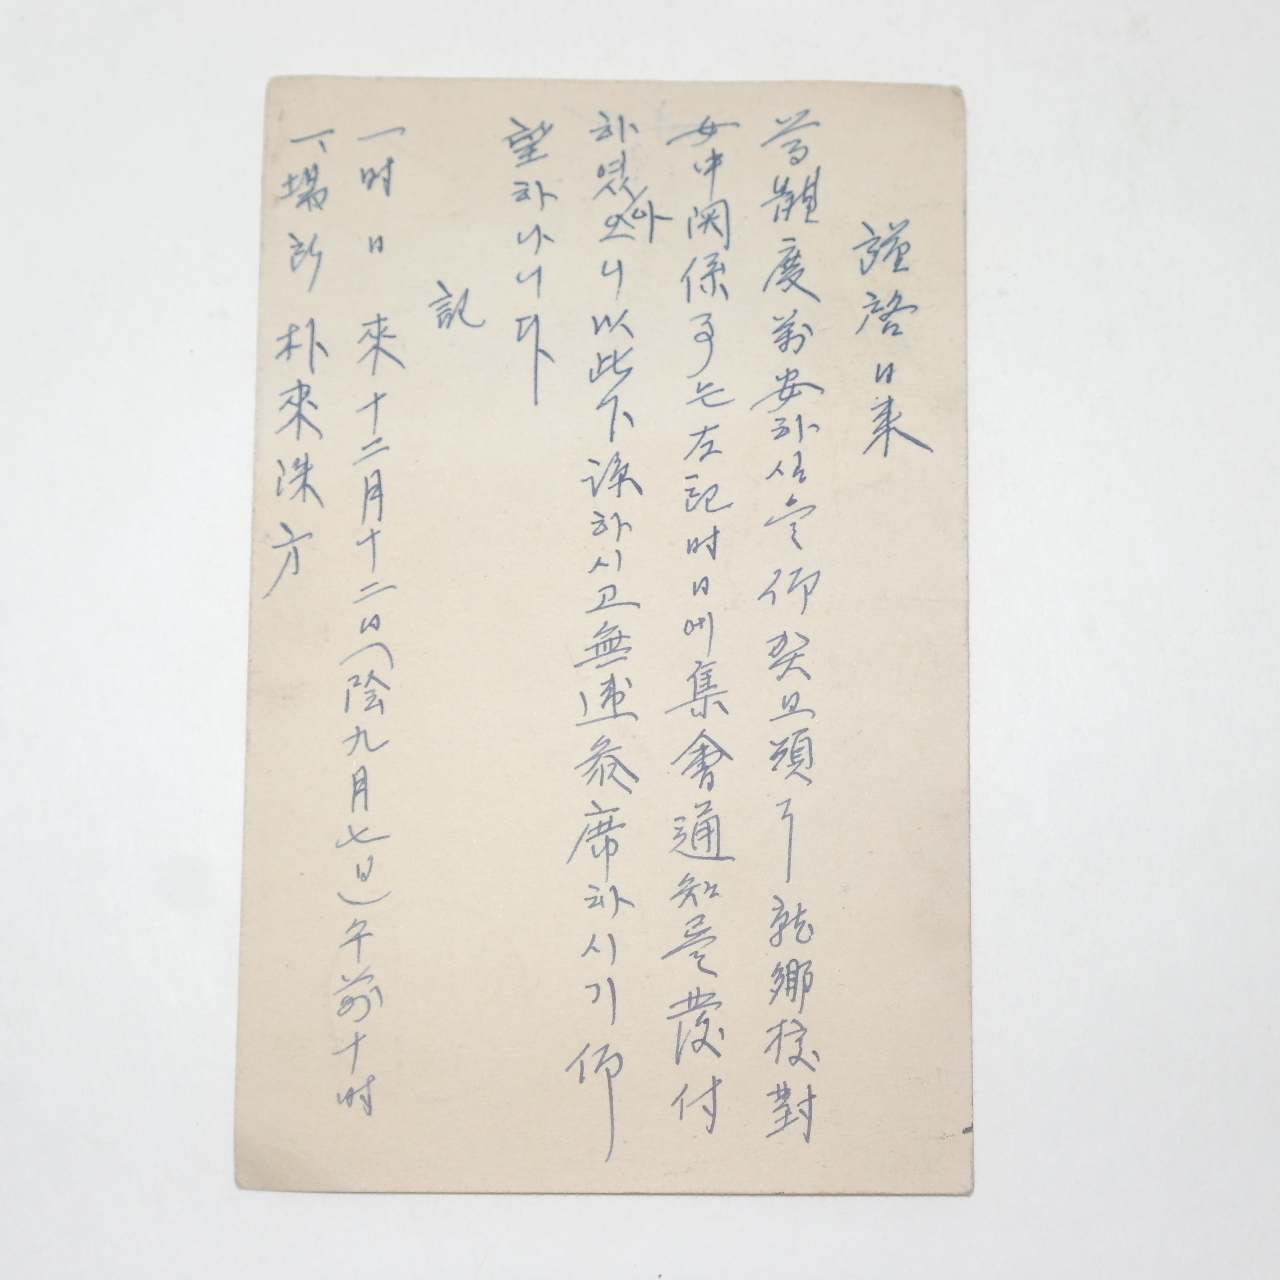 謹啓日來
尊體度萬安하심을仰癸且頌了就鄕校對
女中関係子는左記时日에集會通知을發付
하였아오니以此下諒하시고無違參席하시기仰
望하나니다
記
一时日 來十二月十二日(陰九月七日)午前十时
一、場所 朴來洙方